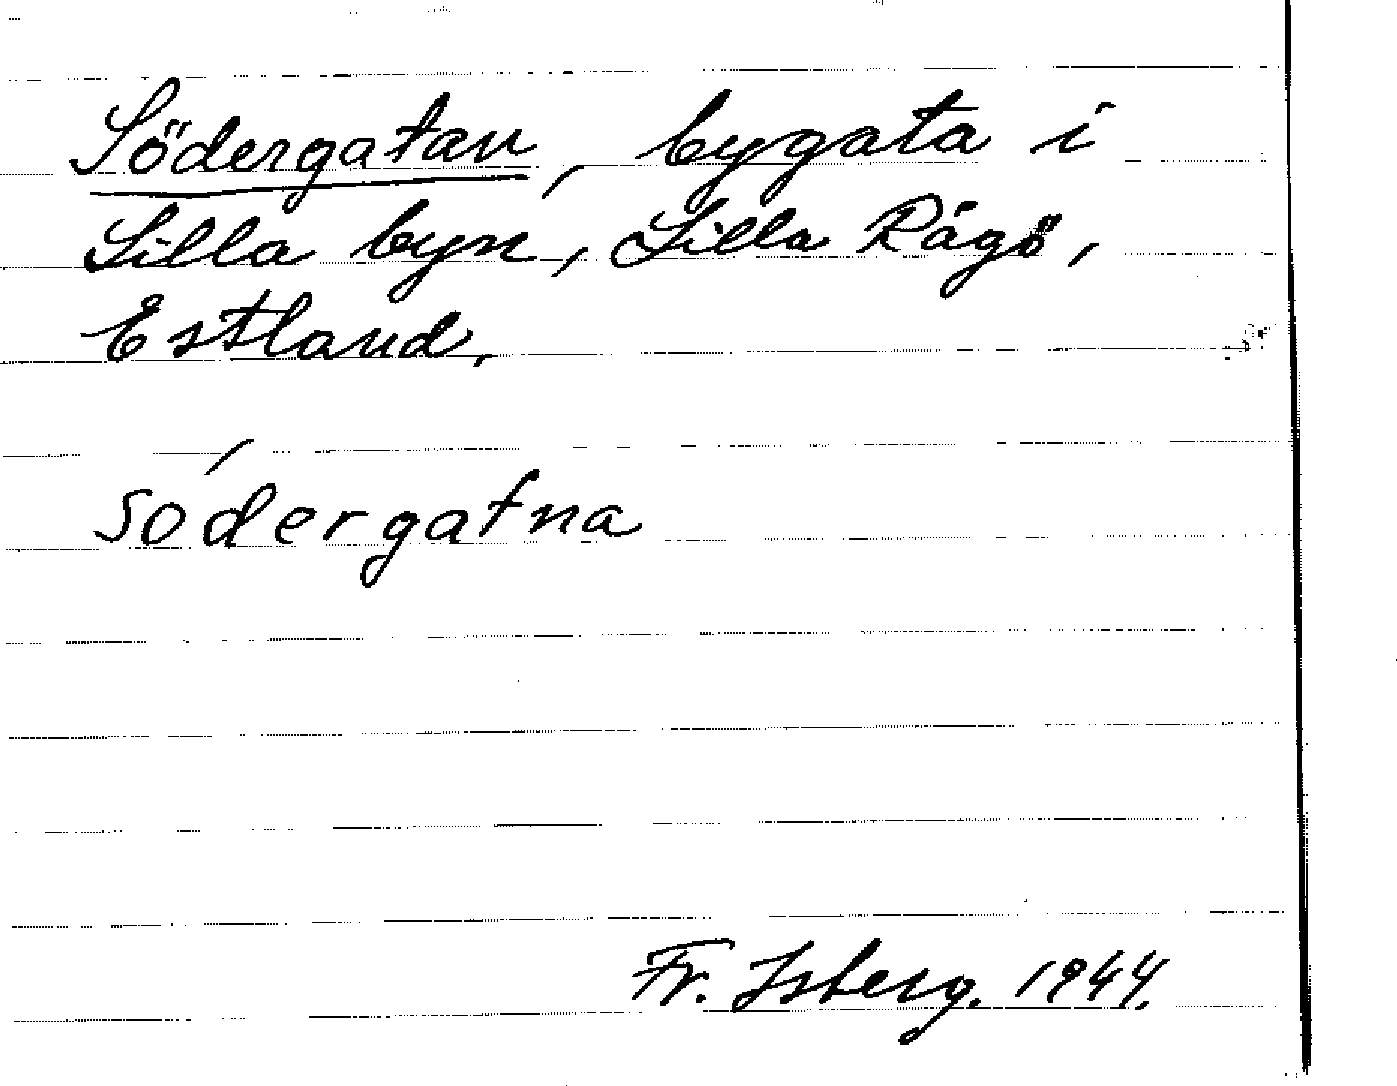 Södergatan, bygata i
Lilla byn, Lilla Rågö,
Estland.
sódergatna
Fr. Isberg. 1944.